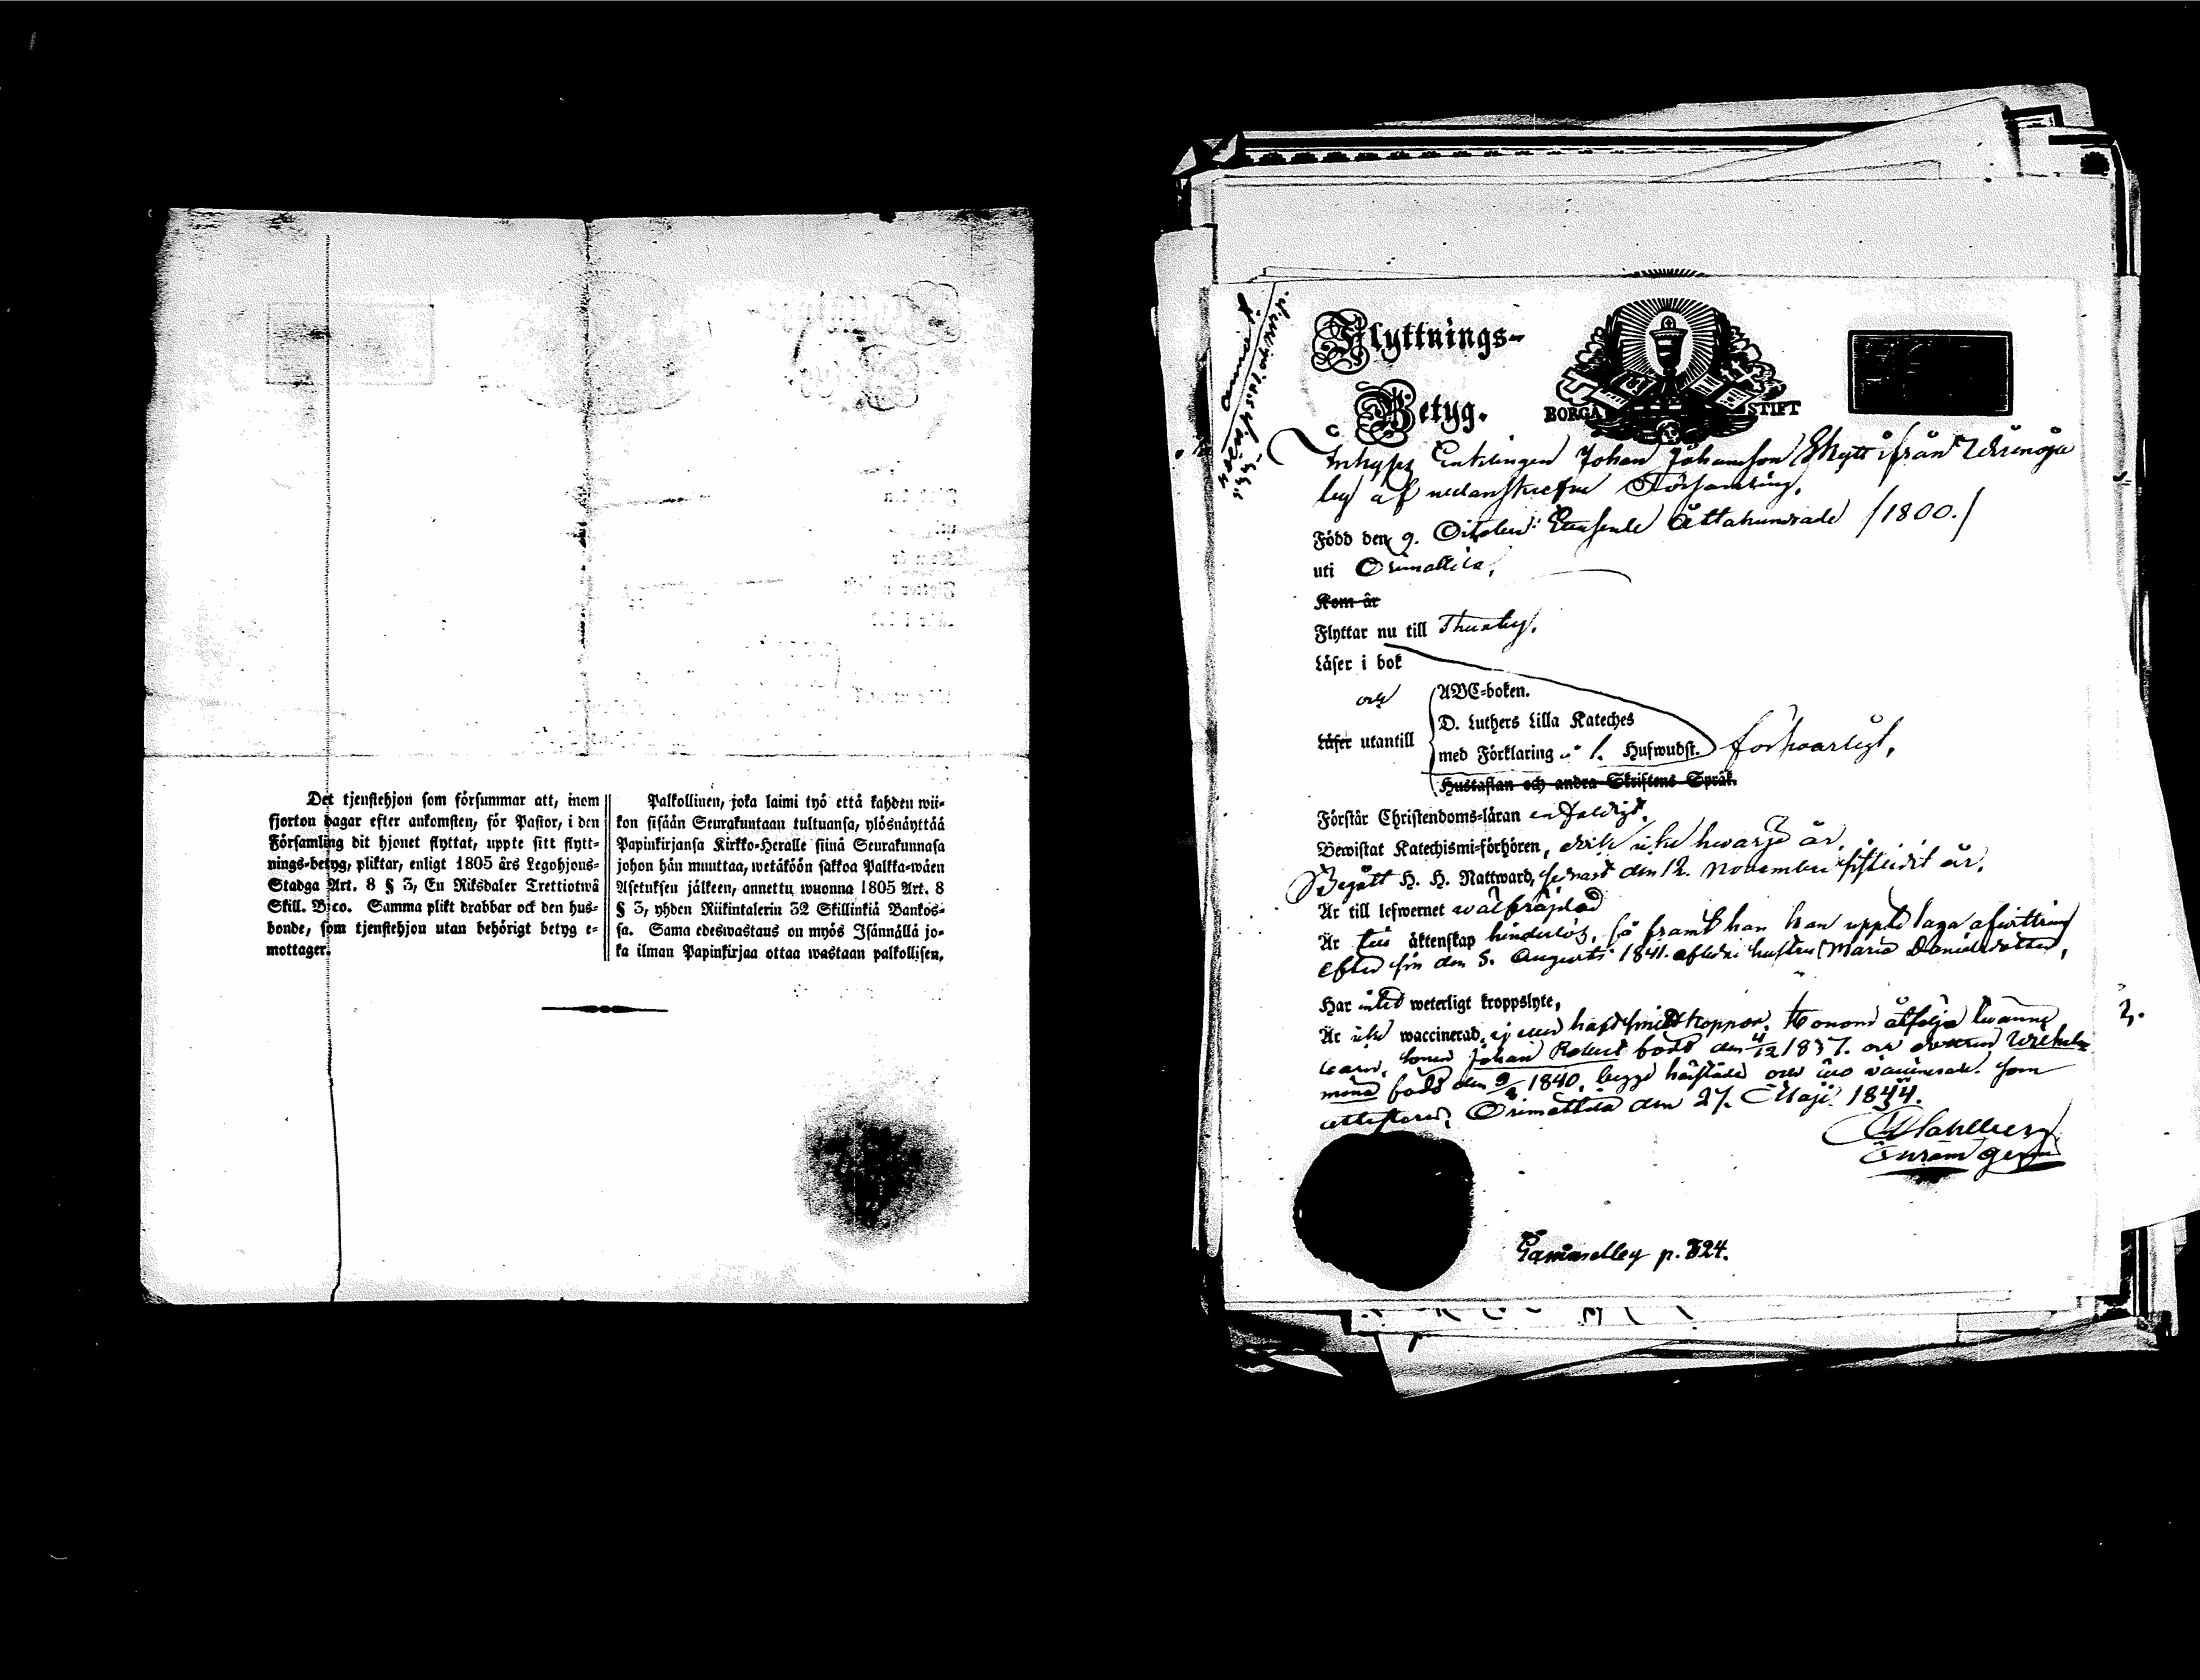 Det tjenstehjon som försummar att, inom
fjorton dagar efter ankomsten, för Pastor, i den
Församling dit hjonet flyttat, uppte sitt flytt-
nings-betyg, pliktar, enligt 1805 års Legohjons-
Stadga Art. 8 § 3, En Riksdaler Trettiotwå
Skill. B:co. Samma plikt drabbar ock den hus-
bonde, som tjenstehjon utan behörigt betyg e-
mottager.
Palkollinen, joka laimi lyö että kahden wii-
kon sisään Seurakuntaan tultuansa, ylösnäyttää
Papinkirjansa Kirkko-Heralle siinä Seurakunnasa
johon hän muuttaa, wetäköön sakkoa Palkka-wäen
Asetuksen jälkeen, annettu wuonna 1805 Art. 8
§ 3, yhden Riikintalerin 32 Skillinkiä Bankos-
sa. Sama edeswastaus on myös Isännällä jo-
ka ilman Papinkirjaa ottaa wastaan palkollisen.
Flyttnings-
Betyg.
BORGÅ STIFT
Enklingen Johan Johansson Skytt ifrån
af nedanskrefne Församling.
Född den 9. October Ettusende Åttahundrade /1800./
uti Orimattila.
Kom år
Flyttar nu till Thusby.
Läser i bok
och
ABC-boken.
D. Luthers Lilla Kateches
Läser utantill
med Förklaring Hufwudst. förswarligt,
Hustaflan och andra Skriftens Språk.
Förstår Christendoms-läran enfaldigt.
Bewistat Katechismi-förhören, icke hwarje år.
Begått H. H. Nattward, senast den 12. November sistledit år.
Är till lefwernet wälfräjdad
Är till äktenskap hinderlös, så framt han kan uppte laga afwittring
efter sin den 5. Augusti 1841. aflidne hustru Maria Danielsdotter,
Har intet weterligt kroppslyte,
Är icke waccinerad, ej eller haft smittkoppor. Honom åtfölja twänne
barn, sonen Johan Robert född den 4/12 1837. och dottren Wilhel-
mina född den 1840, begge och äro vaccinerade. Som
attesteras, Orimattila den 27. Maji 1844.
Gammelby p. 324.
2.